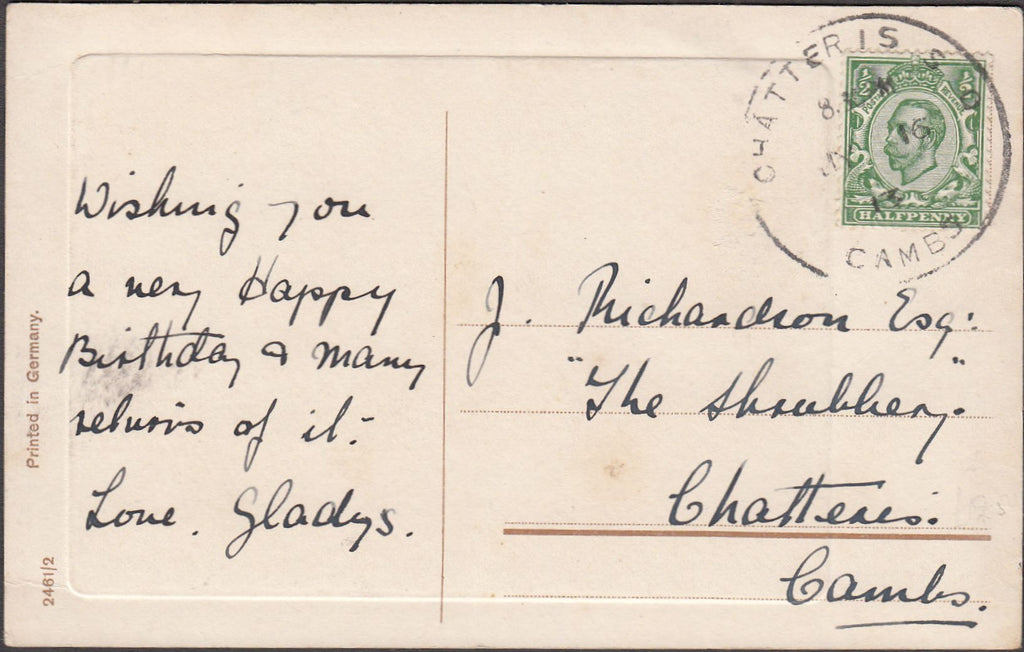 Wishing you
a very Happy
Birthday & many
returns of it:-
Love. Gladys.
J. Richardson Esq:
"The Shrubbery."
Chatteris.
Cambs.
CHATTERIS S.O
16
13
CAMBS
½ ½
POSTAGE REVENUE
HALFPENNY
Printed in Germany.
2461/2